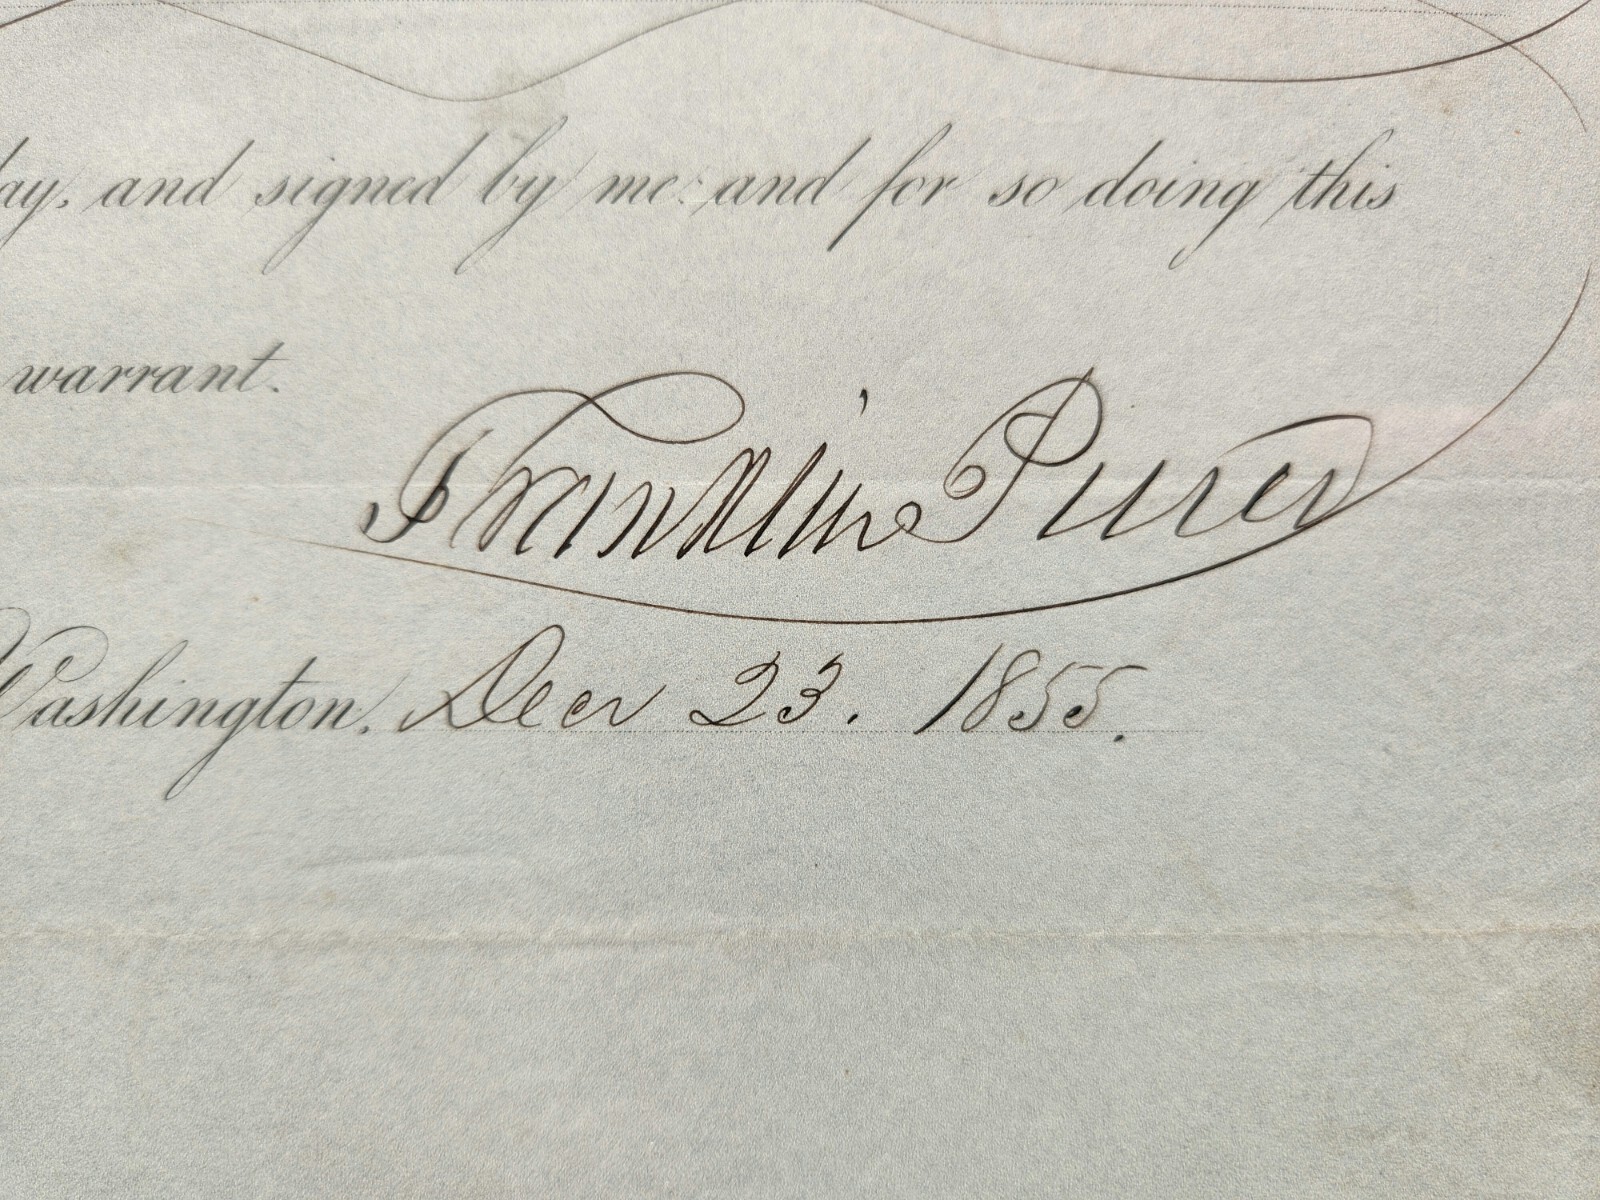 day, and signed by me: and for so doing this
warrant.
Franklin Pierce
Washington, Decr 23. 1855.